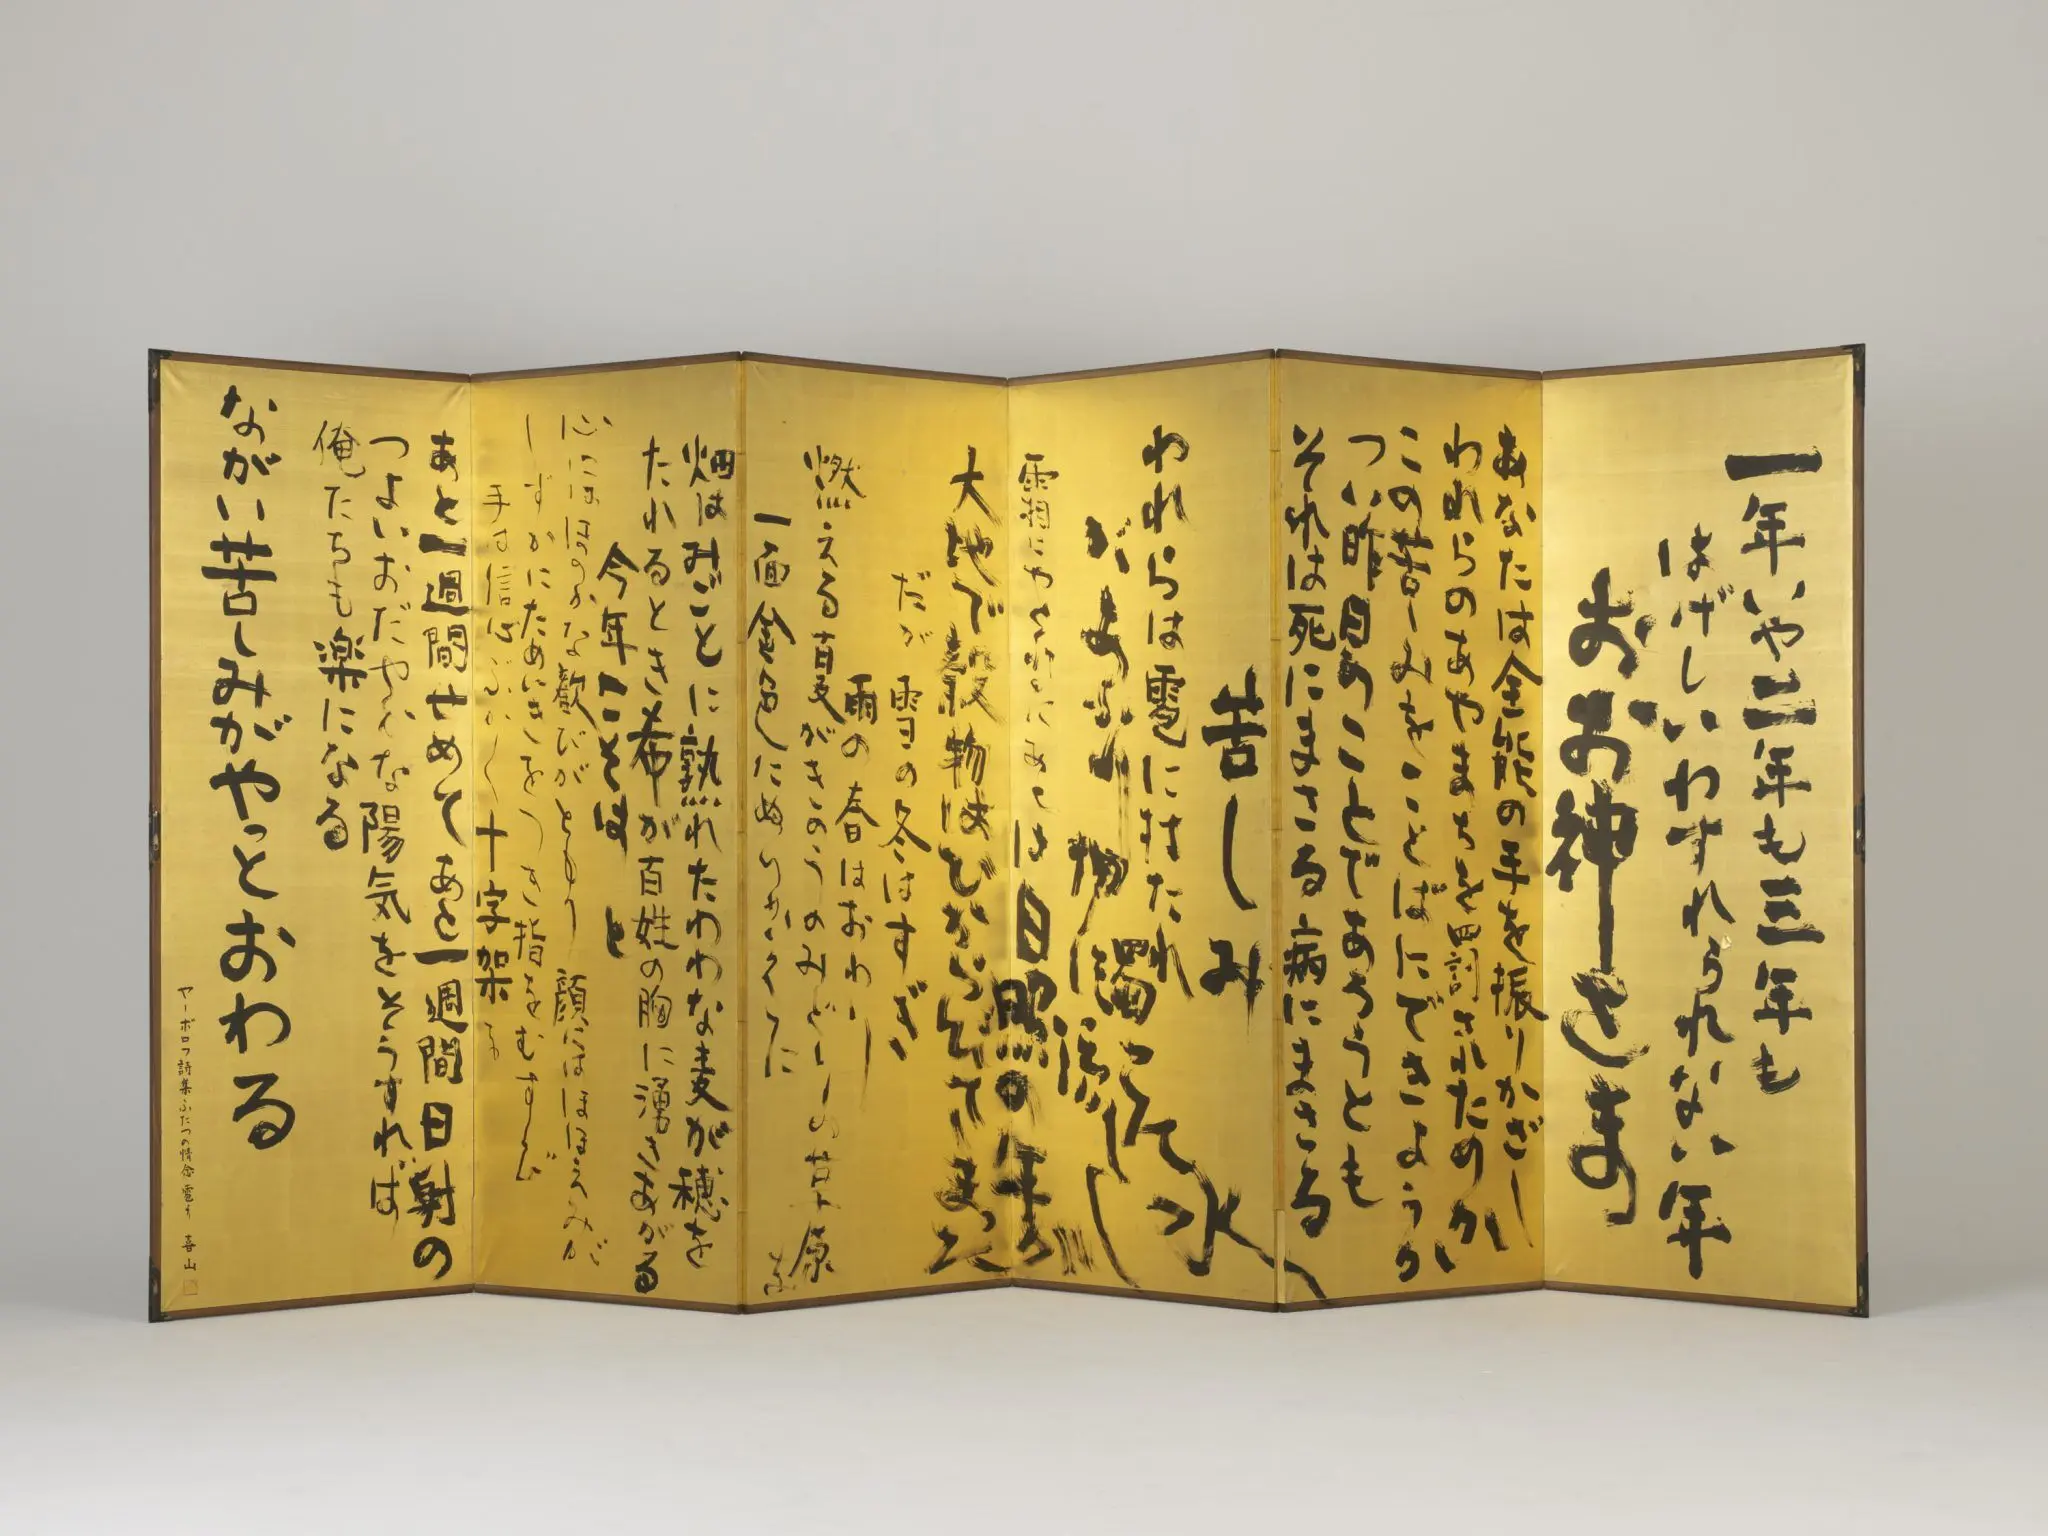 一年いや二年も三年も
はげしいわすれられない年
おお神さま
あなたは全能の手を振りかざし
われらのあやまちを罰されたためか
この苦しみをことばにできようか
つい昨日のことであろうとも
それは死にまさる病にまさる
苦しみ
われらは雹にはたれ
濁って水
があふれ
霜にやられ
は日照の年
大地で穀物はひからびてしまった
だが雪の冬はすぎ
雨の春はおわり
燃える夏がきのうのみどりの草原
一面金色にためらいがくに
畑はみごとに熟れたわわな麦が穂を
たれるとき希が百姓の胸に湧きあがる
今年こそはと
心にはほのかな歓びがともり顔にはほほえみが
しずかにためいきをつき指をむすび
手は信心ぶかく十字架を
あと一週間せめてあと一週間日射の
つよいおだやかな陽気をとうすれば
俺たちも楽になる
ながい苦しみがやっとおわる
ヤーボロフ詩集ふたつの情念雹より 喜山